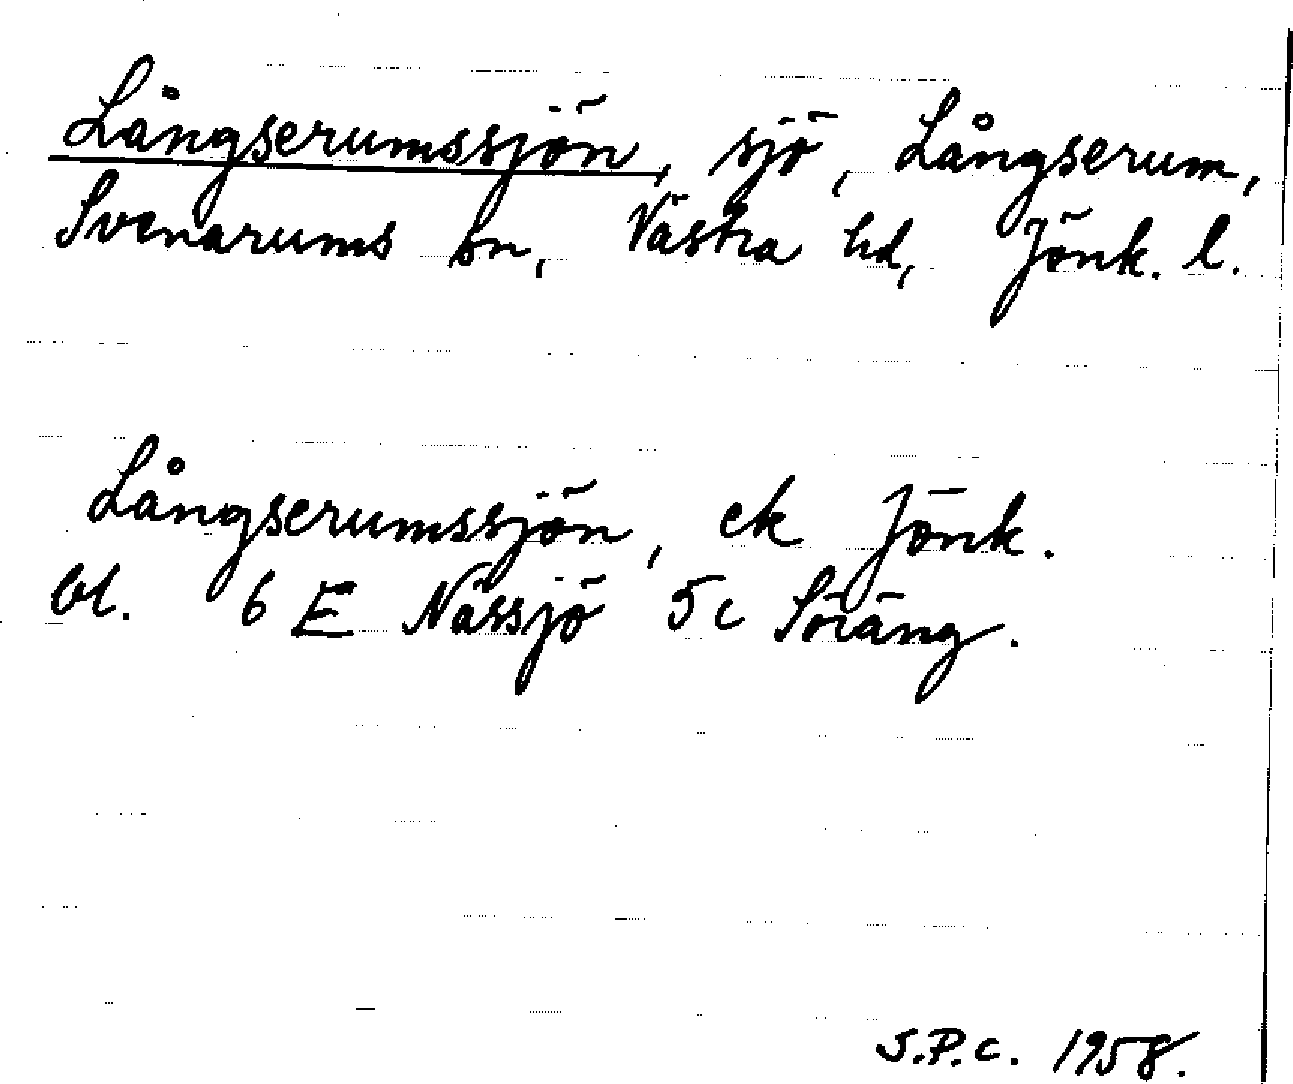 Långserumssjön, sjö, Långserum,
Svenarums sn, Västra hd, Jönk. l.
Långserumssjön, ek Jönk.
bl. 6 E Nässjö 5 c Söräng.
S.P.C. 1958.